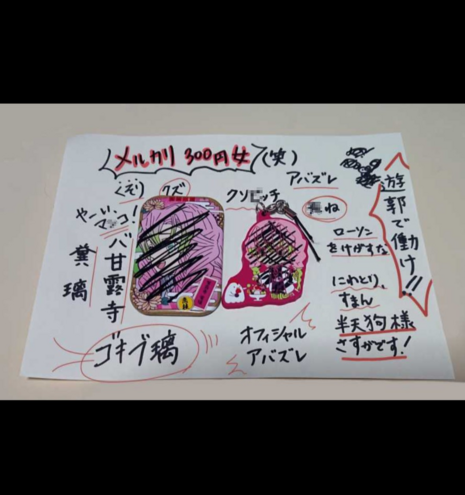 メルカリ 300円女 (笑)
クズ
クソ
アバズレ
ね
遊郭で働け!!
やーい
コ!
バ甘露寺
糞璃
ゴキブ璃
オフィシャル
アバズレ
ローソン
をけがすな
にわとり、
すまん
半天狗様
さすがです!